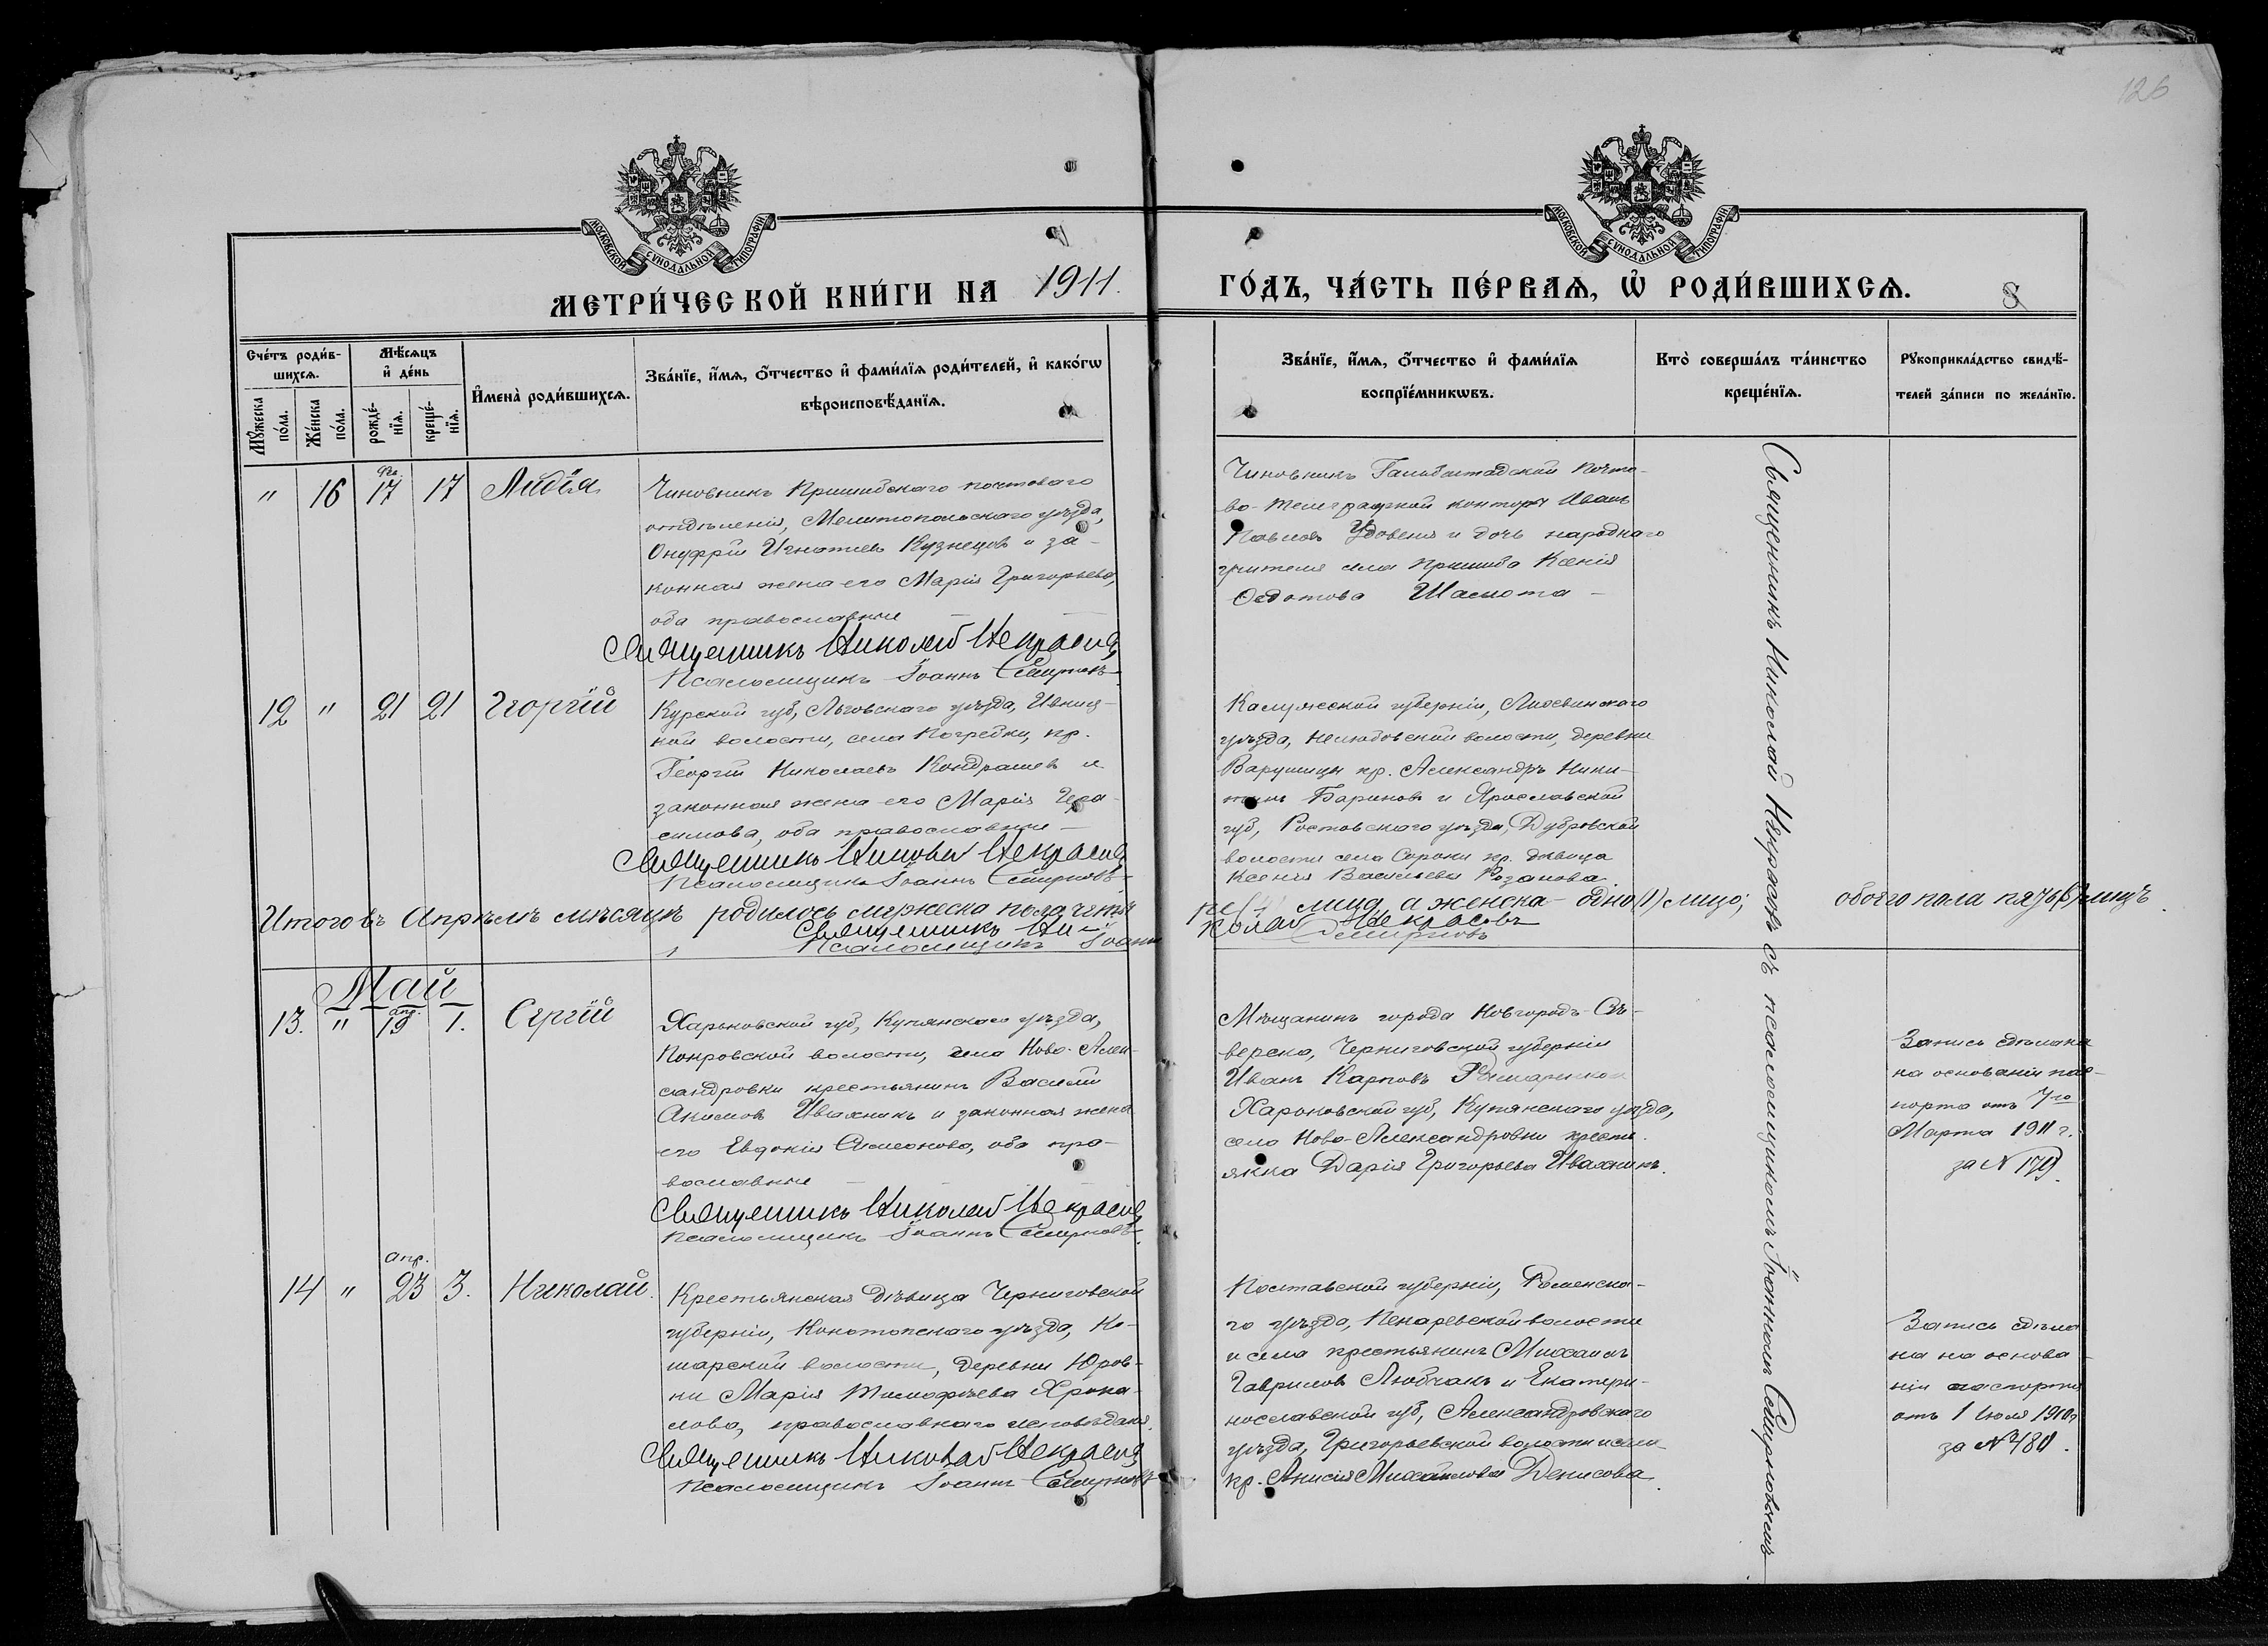 126
МОСКОВСКОЙ СУНОДАЛЬНОЙ ТИПОГРАФІИ
МОСКОВСКОЙ СУНОДАЛЬНОЙ ТИПОГРАФІИ
МЕТРИ́ЧЕСКОЙ КНИ́ГИ НА 1911. ГО́ДЪ, ЧА́СТЬ ПЕ́РВАѦ, Ѡ҆ РОДИ́ВШИХСѦ.
Сче́тъ роди́в-
шихсѧ.
Мꙋ́жеска
по́ла.
Же́нска
по́ла.
Мѣ́сѧцъ
и҆ де́нь
рожде́-
нїѧ.
креще́-
нїѧ.
И҆мена̀ роди́вшихсѧ.
Зва́нїе, и҆́мѧ, ѻ҆́тчество и҆ фами́лїѧ роди́телей, и҆ како́гѡ
вѣроисповѣ́данїѧ.
Зва́нїе, и҆́мѧ, ѻ҆́тчество и҆ фами́лїѧ
воспрїе́мникѡвъ.
Кто̀ соверша́лъ та́инство
креще́нїѧ.
Рꙋкоприкла́дство свидѣ́-
телей за́писи по жела́нїю.
" 16 17 17 Лидія
Чиновникъ Пришибскаго почтоваго
отдѣленія, Мелитопольскаго уѣзда,
Онуфрій Игнатіевъ Кузнецовъ и за-
конная жена его Марія Григорьева,
оба православные
Священникъ Николай Некрасовъ
Псаломщикъ Іоаннъ Смирновъ
Чиновникъ Гальбштадской почто-
во-телеграфной конторы Иванъ
Павловъ и дочь народнаго
учителя села Пришиба Ксенія
Федотова Шамота
12 " 21 21 Георгій
Курской губ., Льговскаго уѣзда, Ивниц-
кой волости, села Погребки, кр.
Георгій Николаевъ Кондрашев и
законная жена его Марія Гера-
симова, оба православные
Священникъ Николай Некрасовъ
Псаломщикъ Іоаннъ Смирновъ
Калужской губерніи, Лихвинскаго
уѣзда, волости, деревни
Варушицы кр. Александръ Ники-
тинъ Бариновъ и Ярославской
губ., Ростовскаго уѣзда, Дубровской
волости села Сороки кр. дѣвица
Ксенія Васильева Розанова
Итого въ Апрѣлѣ мѣсяцѣ родилось мужеска пола четы-
ре (4) лица, а женска - одно (1) лицо; обоего пола пять (5) лицъ.
Священникъ Николай Некрасовъ
Псаломщикъ Іоаннъ Смирновъ
Май
апр.
13. " 19 1. Сергій
Харьковской губ., Купянскаго уѣзда,
Покровской волости, села Ново-Алек-
сандровки крестьянинъ Василій
Акимовъ Ивахникъ и законная жена
его Евдокія Симеонова, оба пра-
вославные
Священникъ Николай Некрасовъ
Псаломщикъ Іоаннъ Смирновъ
Мѣщанинъ города Новгородъ-Сѣ-
верска, Черниговской губерніи
Иванъ Карповъ
Харьковской губ., Купянскаго уѣзда,
села Ново-Александровки кресть-
янка Дарія Григорьева Ивахникъ.
Запись сдѣлана
на основаніи пас-
порта отъ 7го
Марта 1911 г.
за № 179.
апр.
14 " 23 3. Николай.
Крестьянская дѣвица Черниговской
губерніи, Конотопскаго уѣзда,
волости, деревни Юров-
ки Марія Тимофѣева
православнаго исповѣданія.
Священникъ Николай Некрасовъ
Псаломщикъ Іоаннъ Смирновъ
Полтавской губерніи, Роменска-
го уѣзда, Пекаревской волости
и села крестьянинъ Михаилъ
Гавриловъ Любчакъ и Екатери-
нославской губ., Александровскаго
уѣзда, Григорьевской волости и села
кр. Анисія Михайлова Денисова.
Запись сдѣла-
на на основа-
ніи паспорта
отъ 1 Іюля 1910 г.
за № 480.
Священникъ Николай Некрасовъ съ псаломщикомъ Іоанномъ Смирновымъ